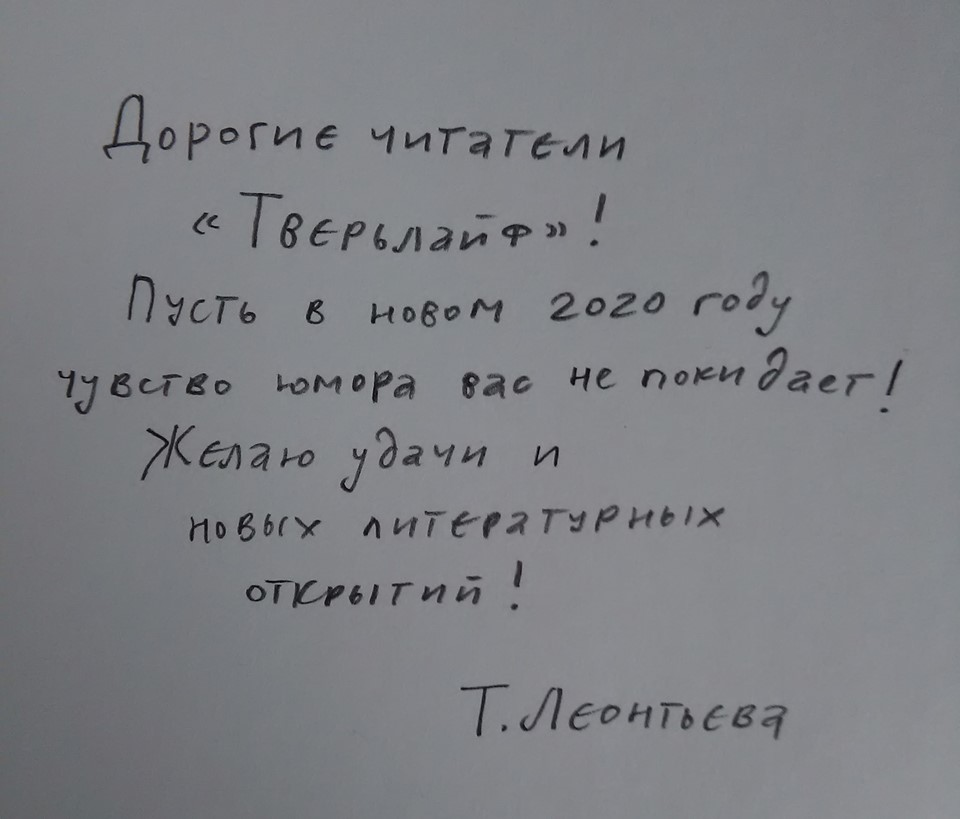 Дорогие читатели
«Тверьлайф»!
Пусть в новом 2020 году
чувство юмора вас не покидает!
Желаю удачи и
новых литературных
открытий!
Т. Леонтьева